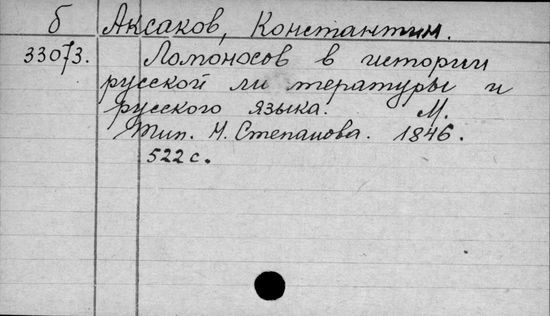 б Аксаков, Константин.
33073. Ломоносов в истории
русской ли тературы и
русского языка. М.
Тип. Н. Степанова. 1846.
522 с.